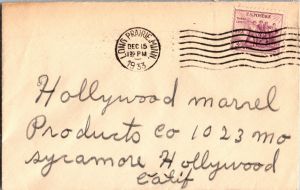 LONG PRAIRIE, MINN.
DEC 15
1933
Hollywood marvel
Products Co 1023 no
sycamore Hollywood
Calif